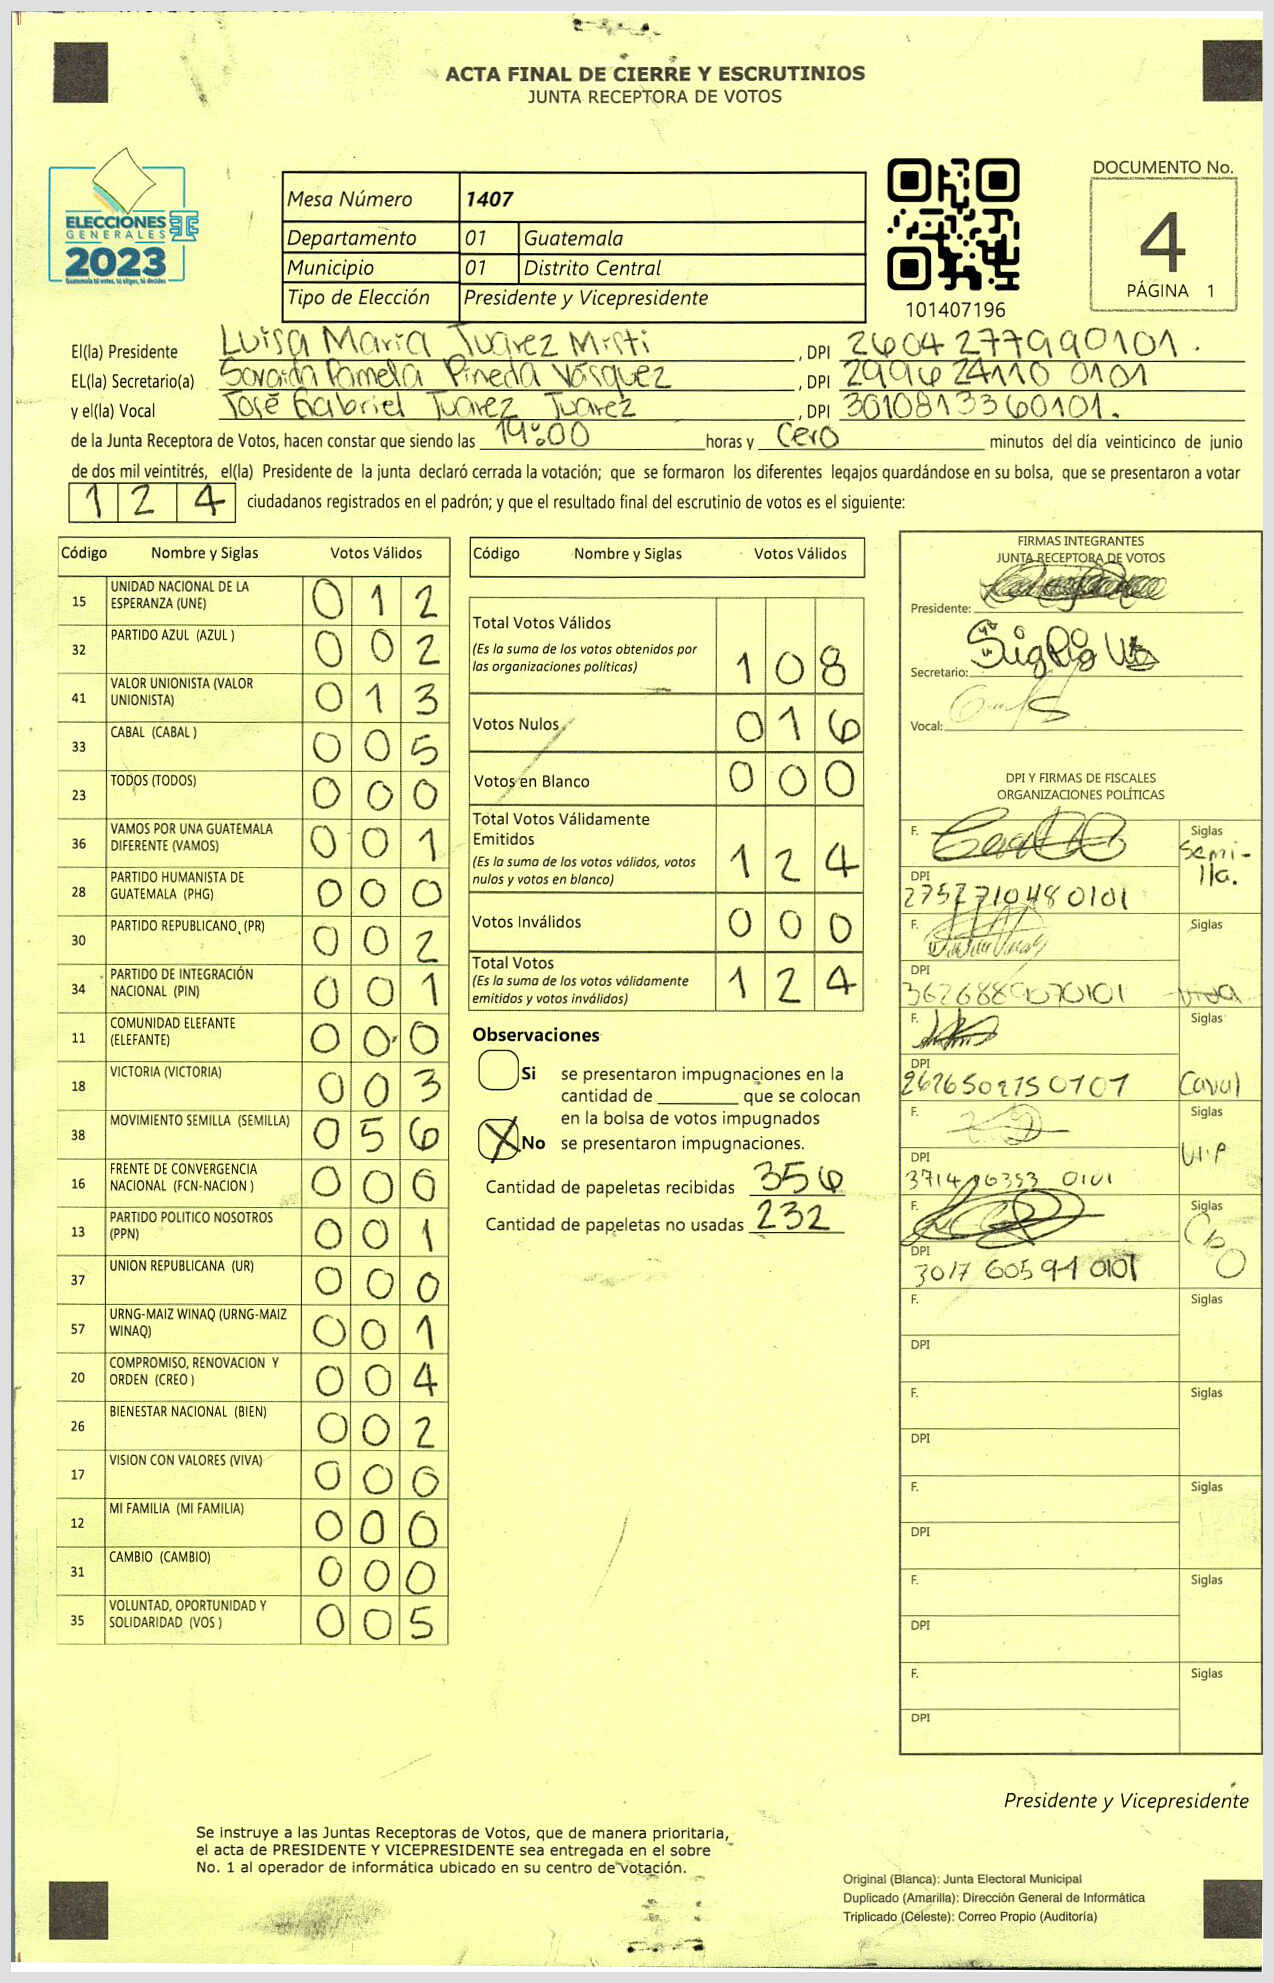 ACTA FINAL DE CIERRE Y ESCRUTINIOS
JUNTA RECEPTORA DE VOTOS
ELECCIONES
GENERALES
2023
Guatemala tú votas, tú eliges, tú decides
Mesa Número 1407
Departamento 01 Guatemala
Municipio 01 Distrito Central
Tipo de Elección Presidente y Vicepresidente
101407196
DOCUMENTO No.
4
PÁGINA 1
El(la) Presidente Luisa María Juárez Misti, DPI 2604277990101.
EL(la) Secretario(a) Soraida Pamela Pineda Vásquez, DPI 2996241100101
y el(la) Vocal José Gabriel Juarez Juarez, DPI 3010813360101.
de la Junta Receptora de Votos, hacen constar que siendo las 19:00 horas y Cero minutos del día veinticinco de junio
de dos mil veintitrés, el(la) Presidente de la junta declaró cerrada la votación; que se formaron los diferentes legajos guardándose en su bolsa, que se presentaron a votar
124 ciudadanos registrados en el padrón; y que el resultado final del escrutinio de votos es el siguiente:
Código Nombre y Siglas Votos Válidos
15 UNIDAD NACIONAL DE LA ESPERANZA (UNE) 012
32 PARTIDO AZUL (AZUL ) 002
41 VALOR UNIONISTA (VALOR UNIONISTA) 013
33 CABAL (CABAL ) 005
23 TODOS (TODOS) 000
36 VAMOS POR UNA GUATEMALA DIFERENTE (VAMOS) 001
28 PARTIDO HUMANISTA DE GUATEMALA (PHG) 000
30 PARTIDO REPUBLICANO (PR) 002
34 PARTIDO DE INTEGRACIÓN NACIONAL (PIN) 001
11 COMUNIDAD ELEFANTE (ELEFANTE) 000
18 VICTORIA (VICTORIA) 003
38 MOVIMIENTO SEMILLA (SEMILLA) 056
16 FRENTE DE CONVERGENCIA NACIONAL (FCN-NACION ) 000
13 PARTIDO POLITICO NOSOTROS (PPN) 001
37 UNION REPUBLICANA (UR) 000
57 URNG-MAIZ WINAQ (URNG-MAIZ WINAQ) 001
20 COMPROMISO, RENOVACION Y ORDEN (CREO ) 004
26 BIENESTAR NACIONAL (BIEN) 002
17 VISION CON VALORES (VIVA) 000
12 MI FAMILIA (MI FAMILIA) 000
31 CAMBIO (CAMBIO) 000
35 VOLUNTAD, OPORTUNIDAD Y SOLIDARIDAD (VOS ) 005
Código Nombre y Siglas Votos Válidos
Total Votos Válidos
(Es la suma de los votos obtenidos por
las organizaciones políticas) 108
Votos Nulos 016
Votos en Blanco 000
Total Votos Válidamente
Emitidos
(Es la suma de los votos válidos, votos
nulos y votos en blanco) 124
Votos Inválidos 000
Total Votos
(Es la suma de los votos válidamente
emitidos y votos inválidos) 124
Observaciones
Si se presentaron impugnaciones en la
cantidad de ________ que se colocan
en la bolsa de votos impugnados
X No se presentaron impugnaciones.
Cantidad de papeletas recibidas 356
Cantidad de papeletas no usadas 232
FIRMAS INTEGRANTES
JUNTA RECEPTORA DE VOTOS
Presidente:
Secretario:
Vocal:
DPI Y FIRMAS DE FISCALES
ORGANIZACIONES POLÍTICAS
F. Siglas
Semi-
lla.
DPI
2752710480101
F. Siglas
DPI
3626889070101 Viva
F. Siglas
DPI
2626502750101 Caval
F. Siglas
DPI
0101
F. Siglas
CREO
DPI
3017 60594 0101
F. Siglas
DPI
F. Siglas
DPI
F. Siglas
DPI
F. Siglas
DPI
F. Siglas
DPI
Presidente y Vicepresidente
Se instruye a las Juntas Receptoras de Votos, que de manera prioritaria,
el acta de PRESIDENTE Y VICEPRESIDENTE sea entregada en el sobre
No. 1 al operador de informática ubicado en su centro de votación.
Original (Blanca): Junta Electoral Municipal
Duplicado (Amarilla): Dirección General de Informática
Triplicado (Celeste): Correo Propio (Auditoría)